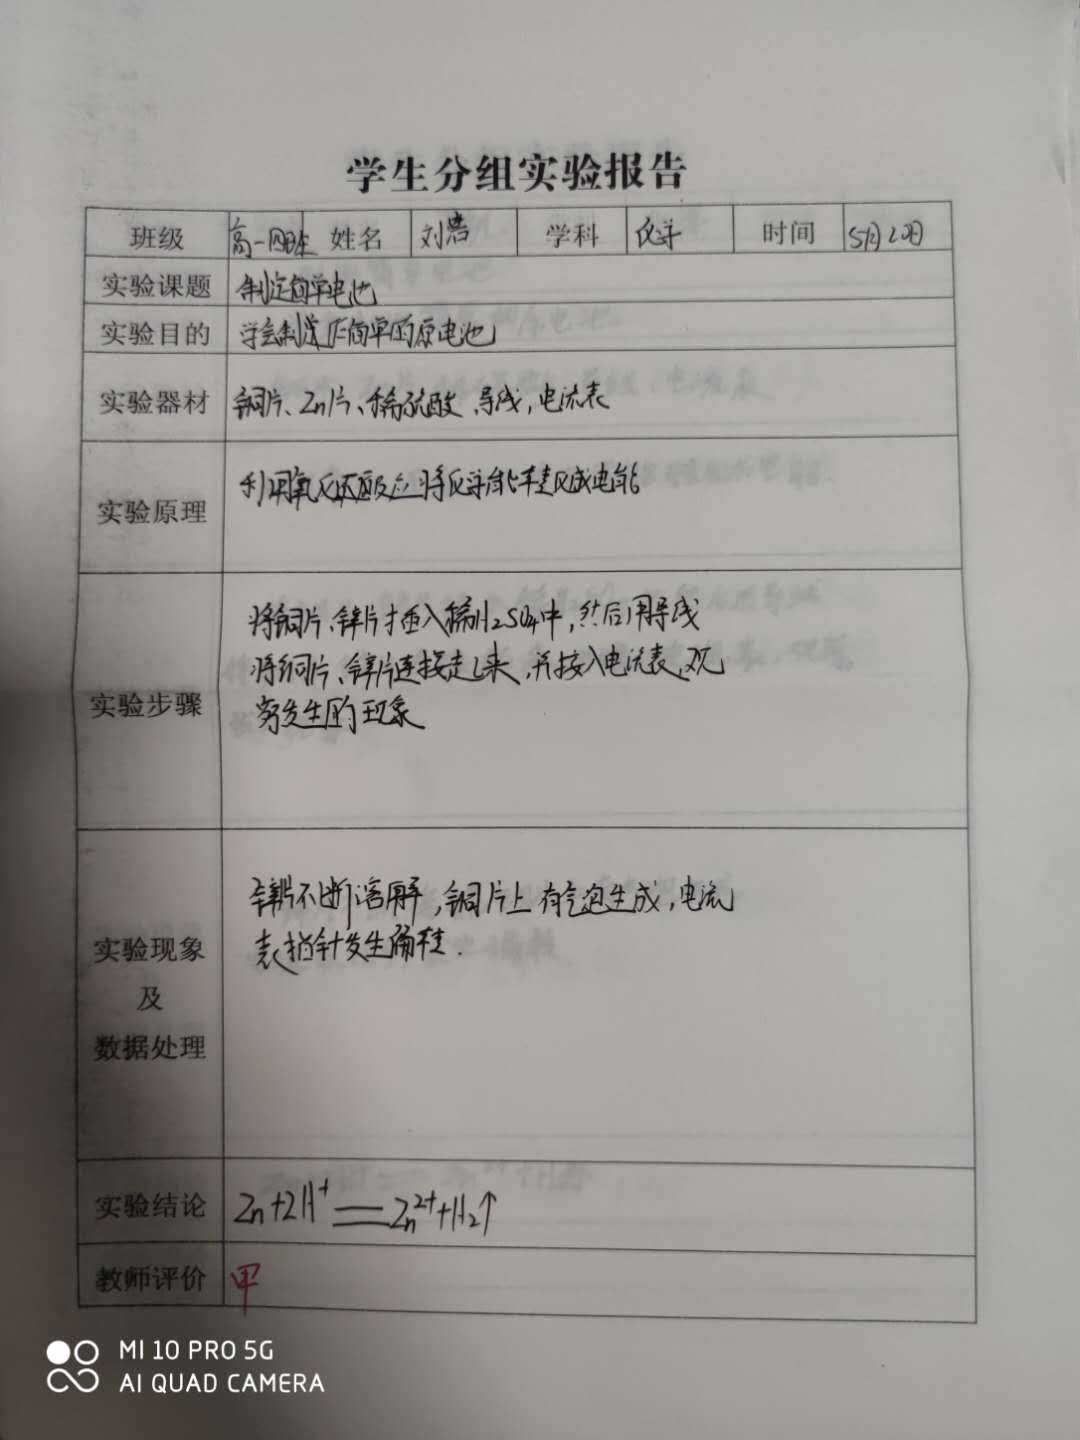 学生分组实验报告
班级 高一四班 姓名 刘岩 学科 化学 时间 5月20日
实验课题 制造简单电池
实验目的 学会制造作简单的原电池
实验器材 铜片、Zn片、稀硫酸、导线,电流表
实验原理 利用氧化还原反应将化学能转变成电能
将铜片、锌片插入稀H₂SO₄中,然后用导线
将铜片、锌片连接起来,并接入电流表,观
实验步骤
察发生的现象
锌片不断溶解,铜片上有气泡生成,电流
表指针发生偏转.
实验现象
及
数据处理
实验结论 Zn+2H⁺══Zn²⁺+H₂↑
教师评价 甲
MI 10 PRO 5G
AI QUAD CAMERA